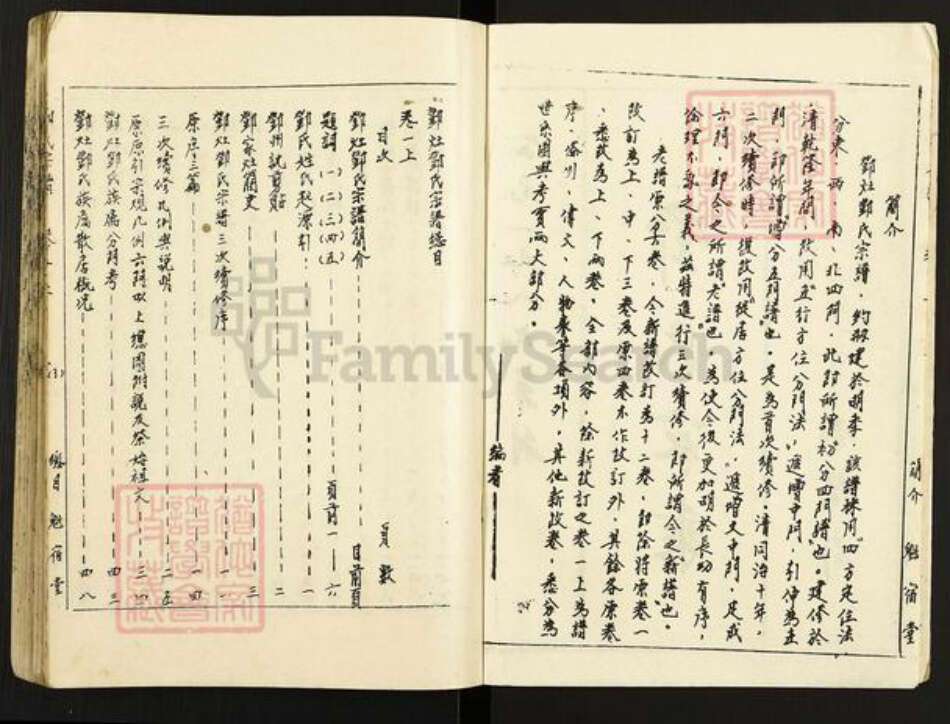 簡介
鄧灶鄧氏宗譜,約叔建於明季,該譜採用"四方定位法",
分東、西、南、北四門,此即所謂"初分四門譜"也。建修於
清乾隆年間,改用"五行方位分門法",遞增中門,引伸為五
門,即所謂"增分五門譜"也,是為首次續修。清同治十年,
二次續修時,復改用"從居方位分門法",遞增文中門,足成
六門,即今之所謂"老譜"也。為使今後更加明於長幼有序,
倫理不紊之義,茲特進行三次續修,即所謂今之"新譜"也。
老譜原分六卷,今新譜改訂為十二卷,即除將原卷一
改訂為上、中、下三卷及原四卷不作改訂外,其餘各原卷
悉改為上、下兩卷。全部內容,除新改訂之卷一上為譜
序、條例、傳文、人物表等各項外,其他新改卷,悉分為
世系圖與考實兩大部分。
編者
簡介 魁宿堂
鄧灶鄧氏宗譜總目
卷一上
目次 頁數
鄧灶鄧氏宗譜簡介 目前頁
題詞 (一)(二)(三)(四)(五) 頁前一—六
鄧氏姓氏起源引 一
鄧州訊剪貼 二
鄧家灶簡史 三
鄧灶鄧氏宗譜三次續修序 一
原序三篇 一四
三次續修凡例與說明 二五
原原引宗規凡例六門四上總圖附說及祭始祖文 三四
鄧灶鄧氏族居分門考 四三
鄧灶鄧氏族居散居概況 四八
總目 魁宿堂
FamilySearch